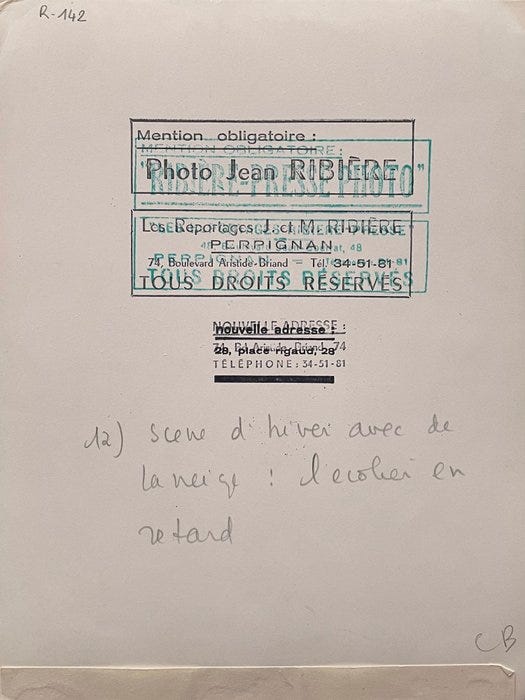 R-142
Mention obligatoire :
MENTION OBLIGATOIRE :
Photo Jean RIBIÈRE
"RIBIÈRE-PRESSE PHOTO"
Les Reportages J. et M. RIBIÈRE
PERPIGNAN
74, Boulevard Aristide-Briand — Tél. 34-51-81
TOUS DROITS RÉSERVÉS
TOUS DROITS RÉSERVÉS
NOUVELLE ADRESSE :
nouvelle adresse :
74, Bd Aristide Briand, 74
28, place rigaud, 28
TÉLÉPHONE : 34-51-81
12) scene d'hiver avec de
la neige : l'ecolier en
retard
CB